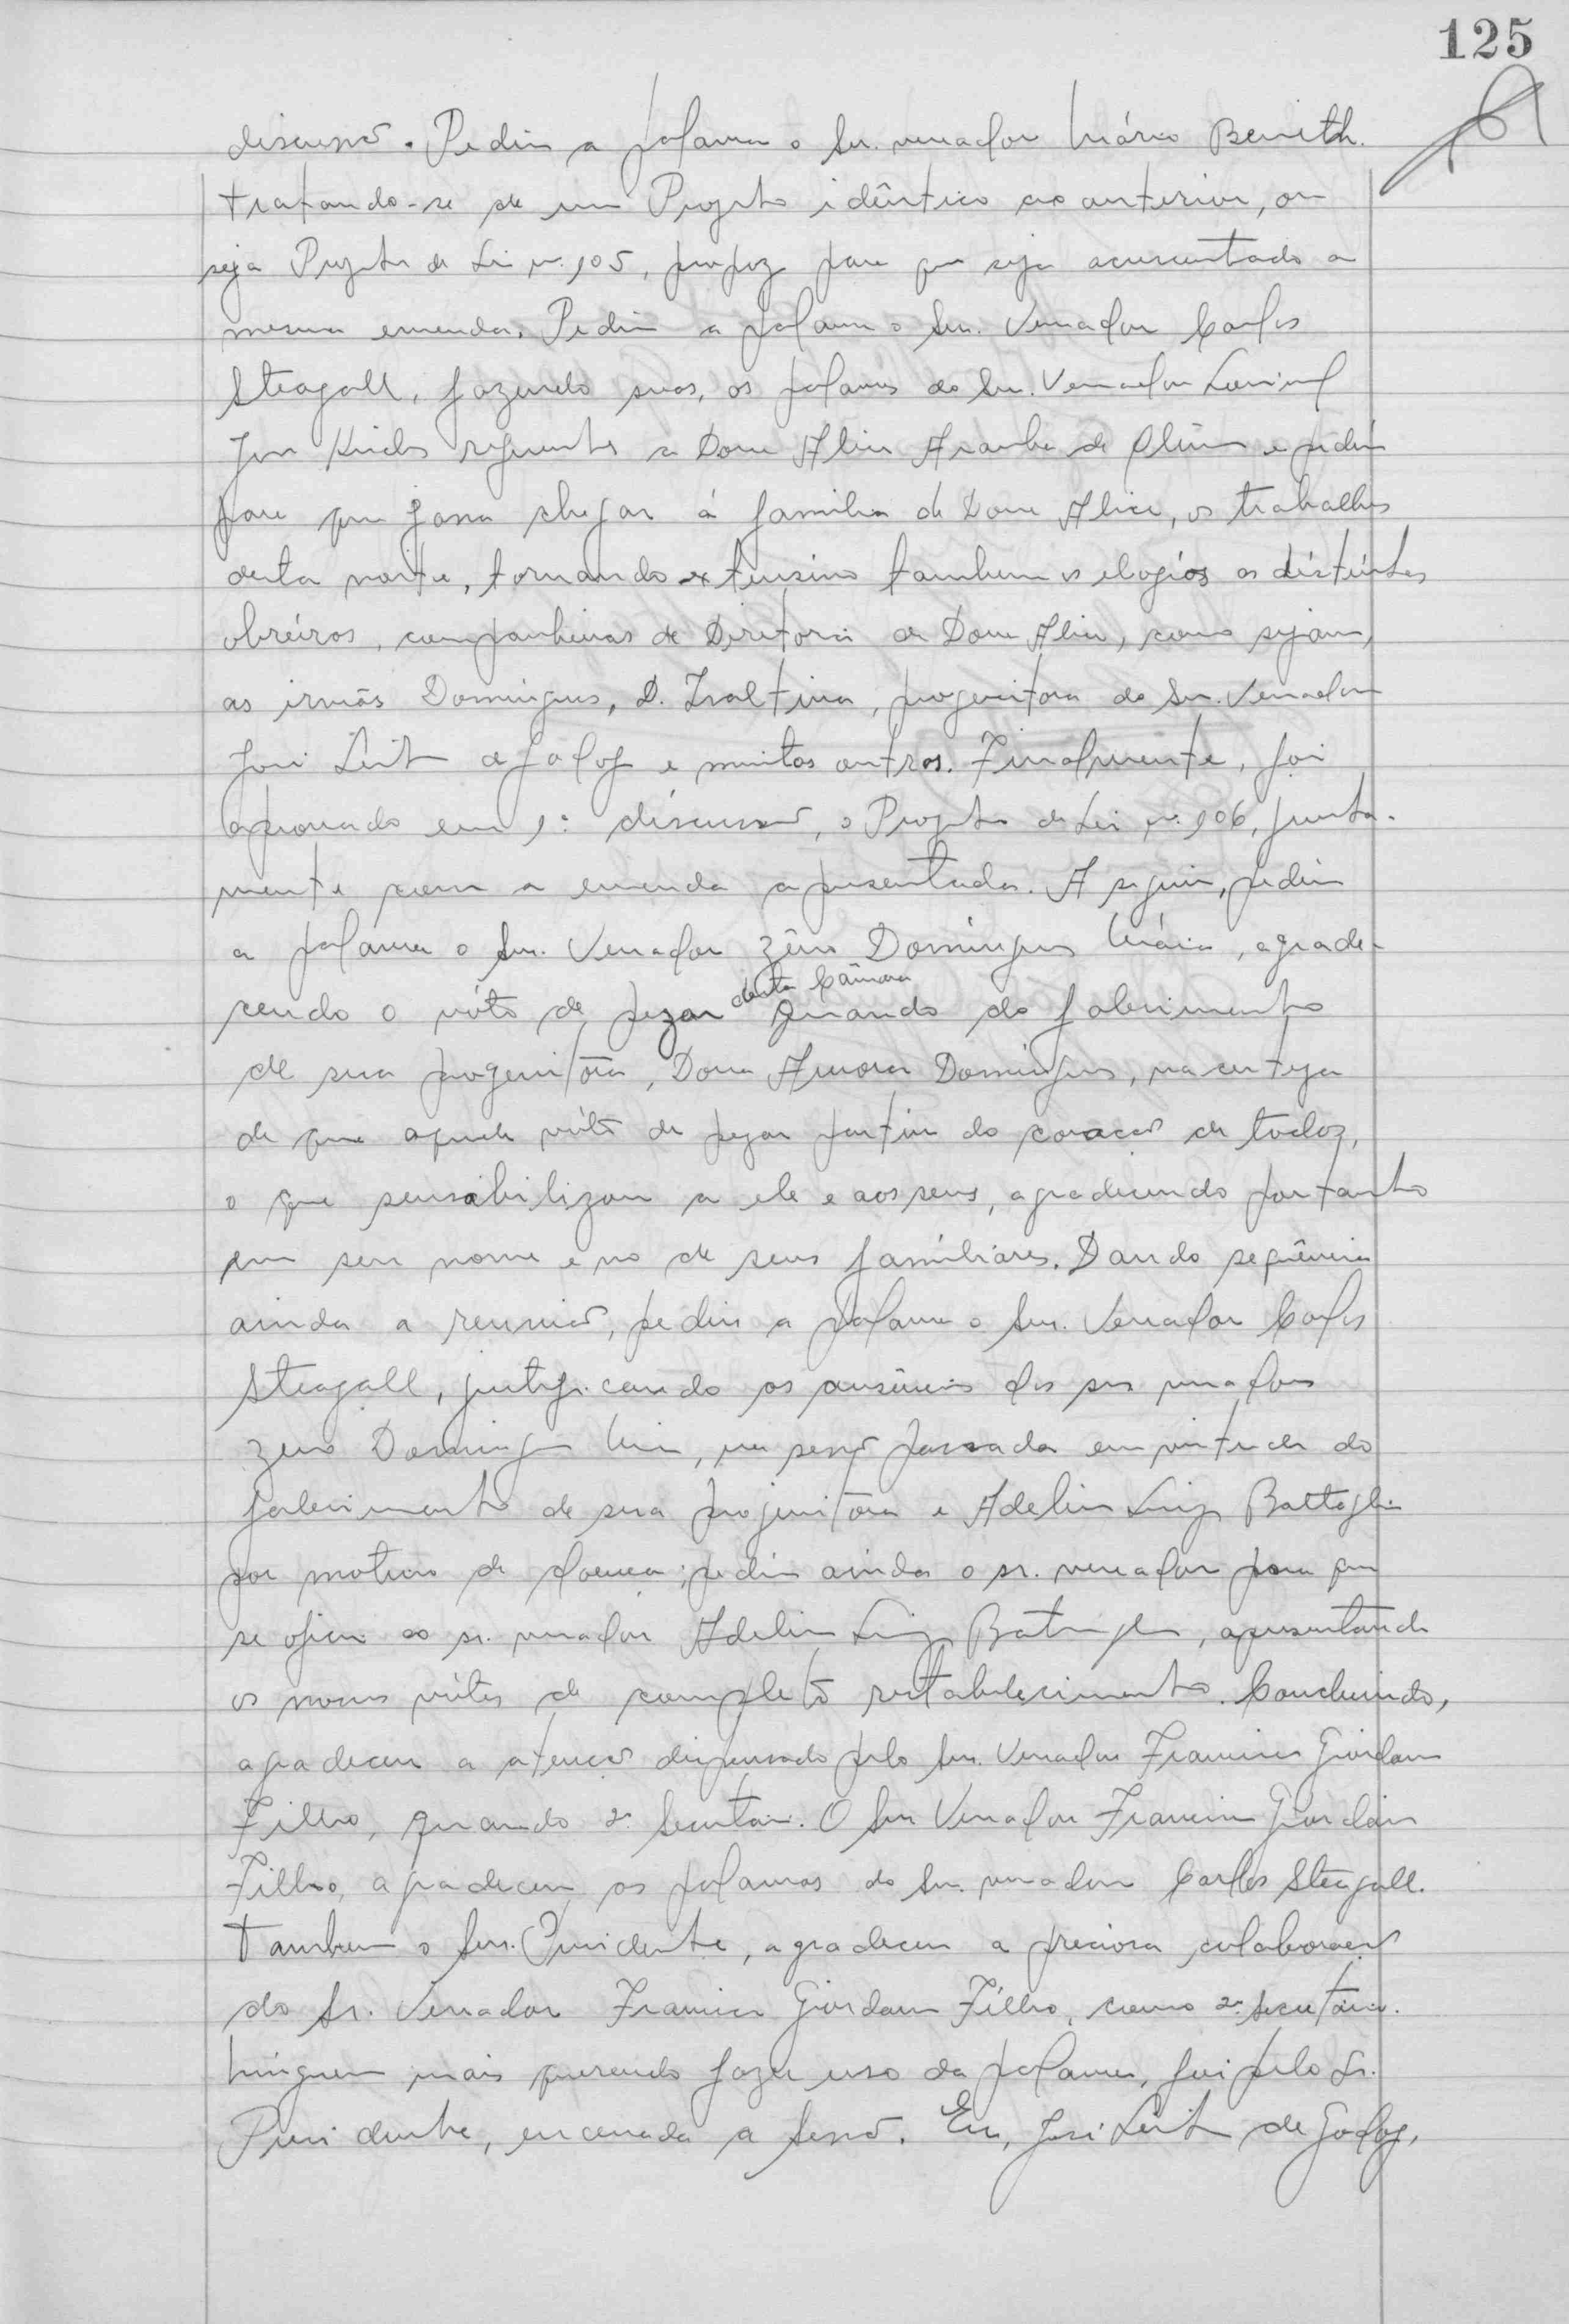 125
discussão. Pediu a palavra o Snr. vereador Mário Benith.
tratando-se de um Projeto idêntico ao anterior, ou
seja Projeto de Lei nº 105, propoz para que seja acrescentado a
mesma emenda. Pediu a palavra o Snr. Vereador Carlos
Steagall, fazendo suas, as palavras do Snr. Vereador
referentes a Dona Alice Aranha de e pediu
para que faça chegar á familia de Dona Alice, os trabalhos
desta noite, tornando extensivo tambem os elogios as distintas
obreiras, companheiras de Diretoria de Dona Alice, como sejam,
as irmãs Domingues, D. Isaltina, progenitora do Snr. Vereador
José Leite de Godoy e muitas outras. Finalmente, foi
aprovado em 1ª discussão, o Projeto de Lei nº 106, junta-
mente com a emenda apresentada. A seguir, pediu
a palavra o Snr. Vereador Zêno Domingues Maia, agrade-
cendo o vóto de pezar desta Câmara quando do falecimento
de sua progenitôra, Dona Aurora Domingues, na certeza
de que aquele vóto de pezar partiu do coração de todoz,
o que sensabilizou a ele e aos seus, agradecendo portanto
em seu nome e no de seus famíliares. Dando seqüência
ainda a reunião, pediu a palavra o Snr. Vereador Carlos
Steagall, justificando as ausências dos srs vereadores
Zeno Domingues Maia, na sessão passada em virtude do
falecimento de sua progenitôra e Adelino Luiz Battaglia
por motivo de doença; pediu ainda o sr. vereador para que
se oficie ao sr. vereador Adelino Luiz Bataglia, apresentando
os nossos vótos de completo restabelecimento. Concluindo,
agradeceu a atenção dispensada pelo Snr. Vereador Francisco Giordano
Filho, quando 2º Secretário. O Snr Vereador Francisco Giordano
Filho, agradeceu as palavras do Snr. vereador Carlos Steagall.
Tambem o Snr. Presidente, agradeceu a preciosa colaboração
do Sr. Vereador Francisco Giordano Filho, como 2º Secretário.
Ninguem mais querendo fazer uso da palavra, foi pelo Sr.
Presidente, encerrada a Sessão. Eu, José Leite de Godoy,